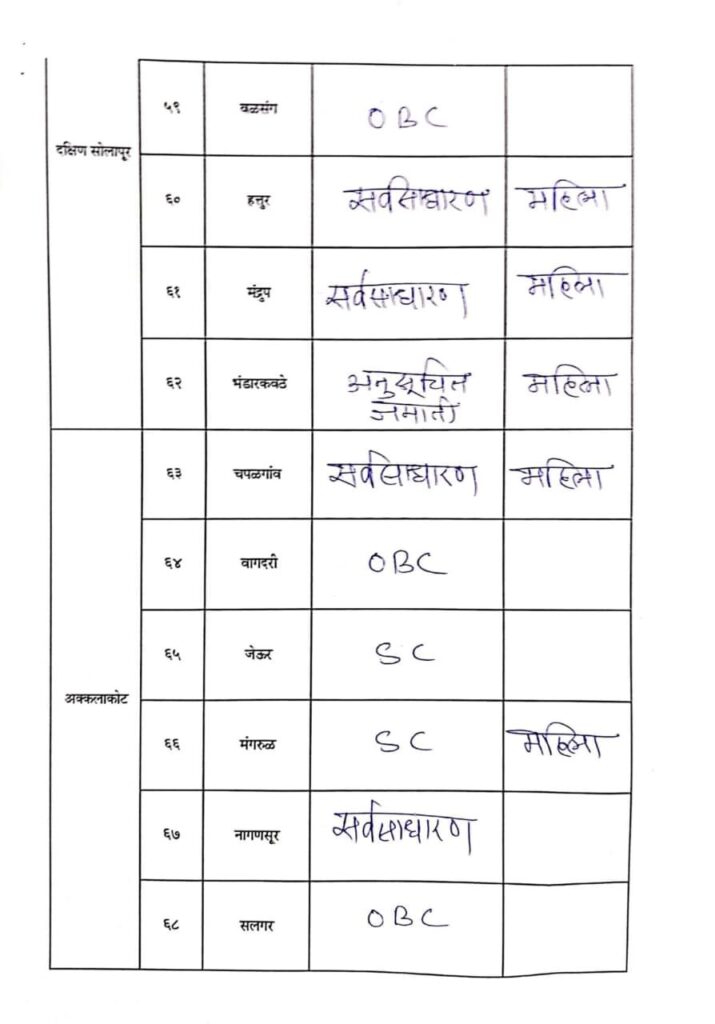 दक्षिण सोलापूर
५९ वळसंग OBC
६० हत्तुर सर्वसाधारण महिला
६१ मंद्रुप सर्वसाधारण महिला
६२ भंडारकवठे अनुसूचित जमाती महिला
अक्कलाकोट
६३ चपळगांव सर्वसाधारण महिला
६४ वागदरी OBC
६५ जेऊर SC
६६ मंगरुळ SC महिला
६७ नागणसूर सर्वसाधारण
६८ सलगर OBC